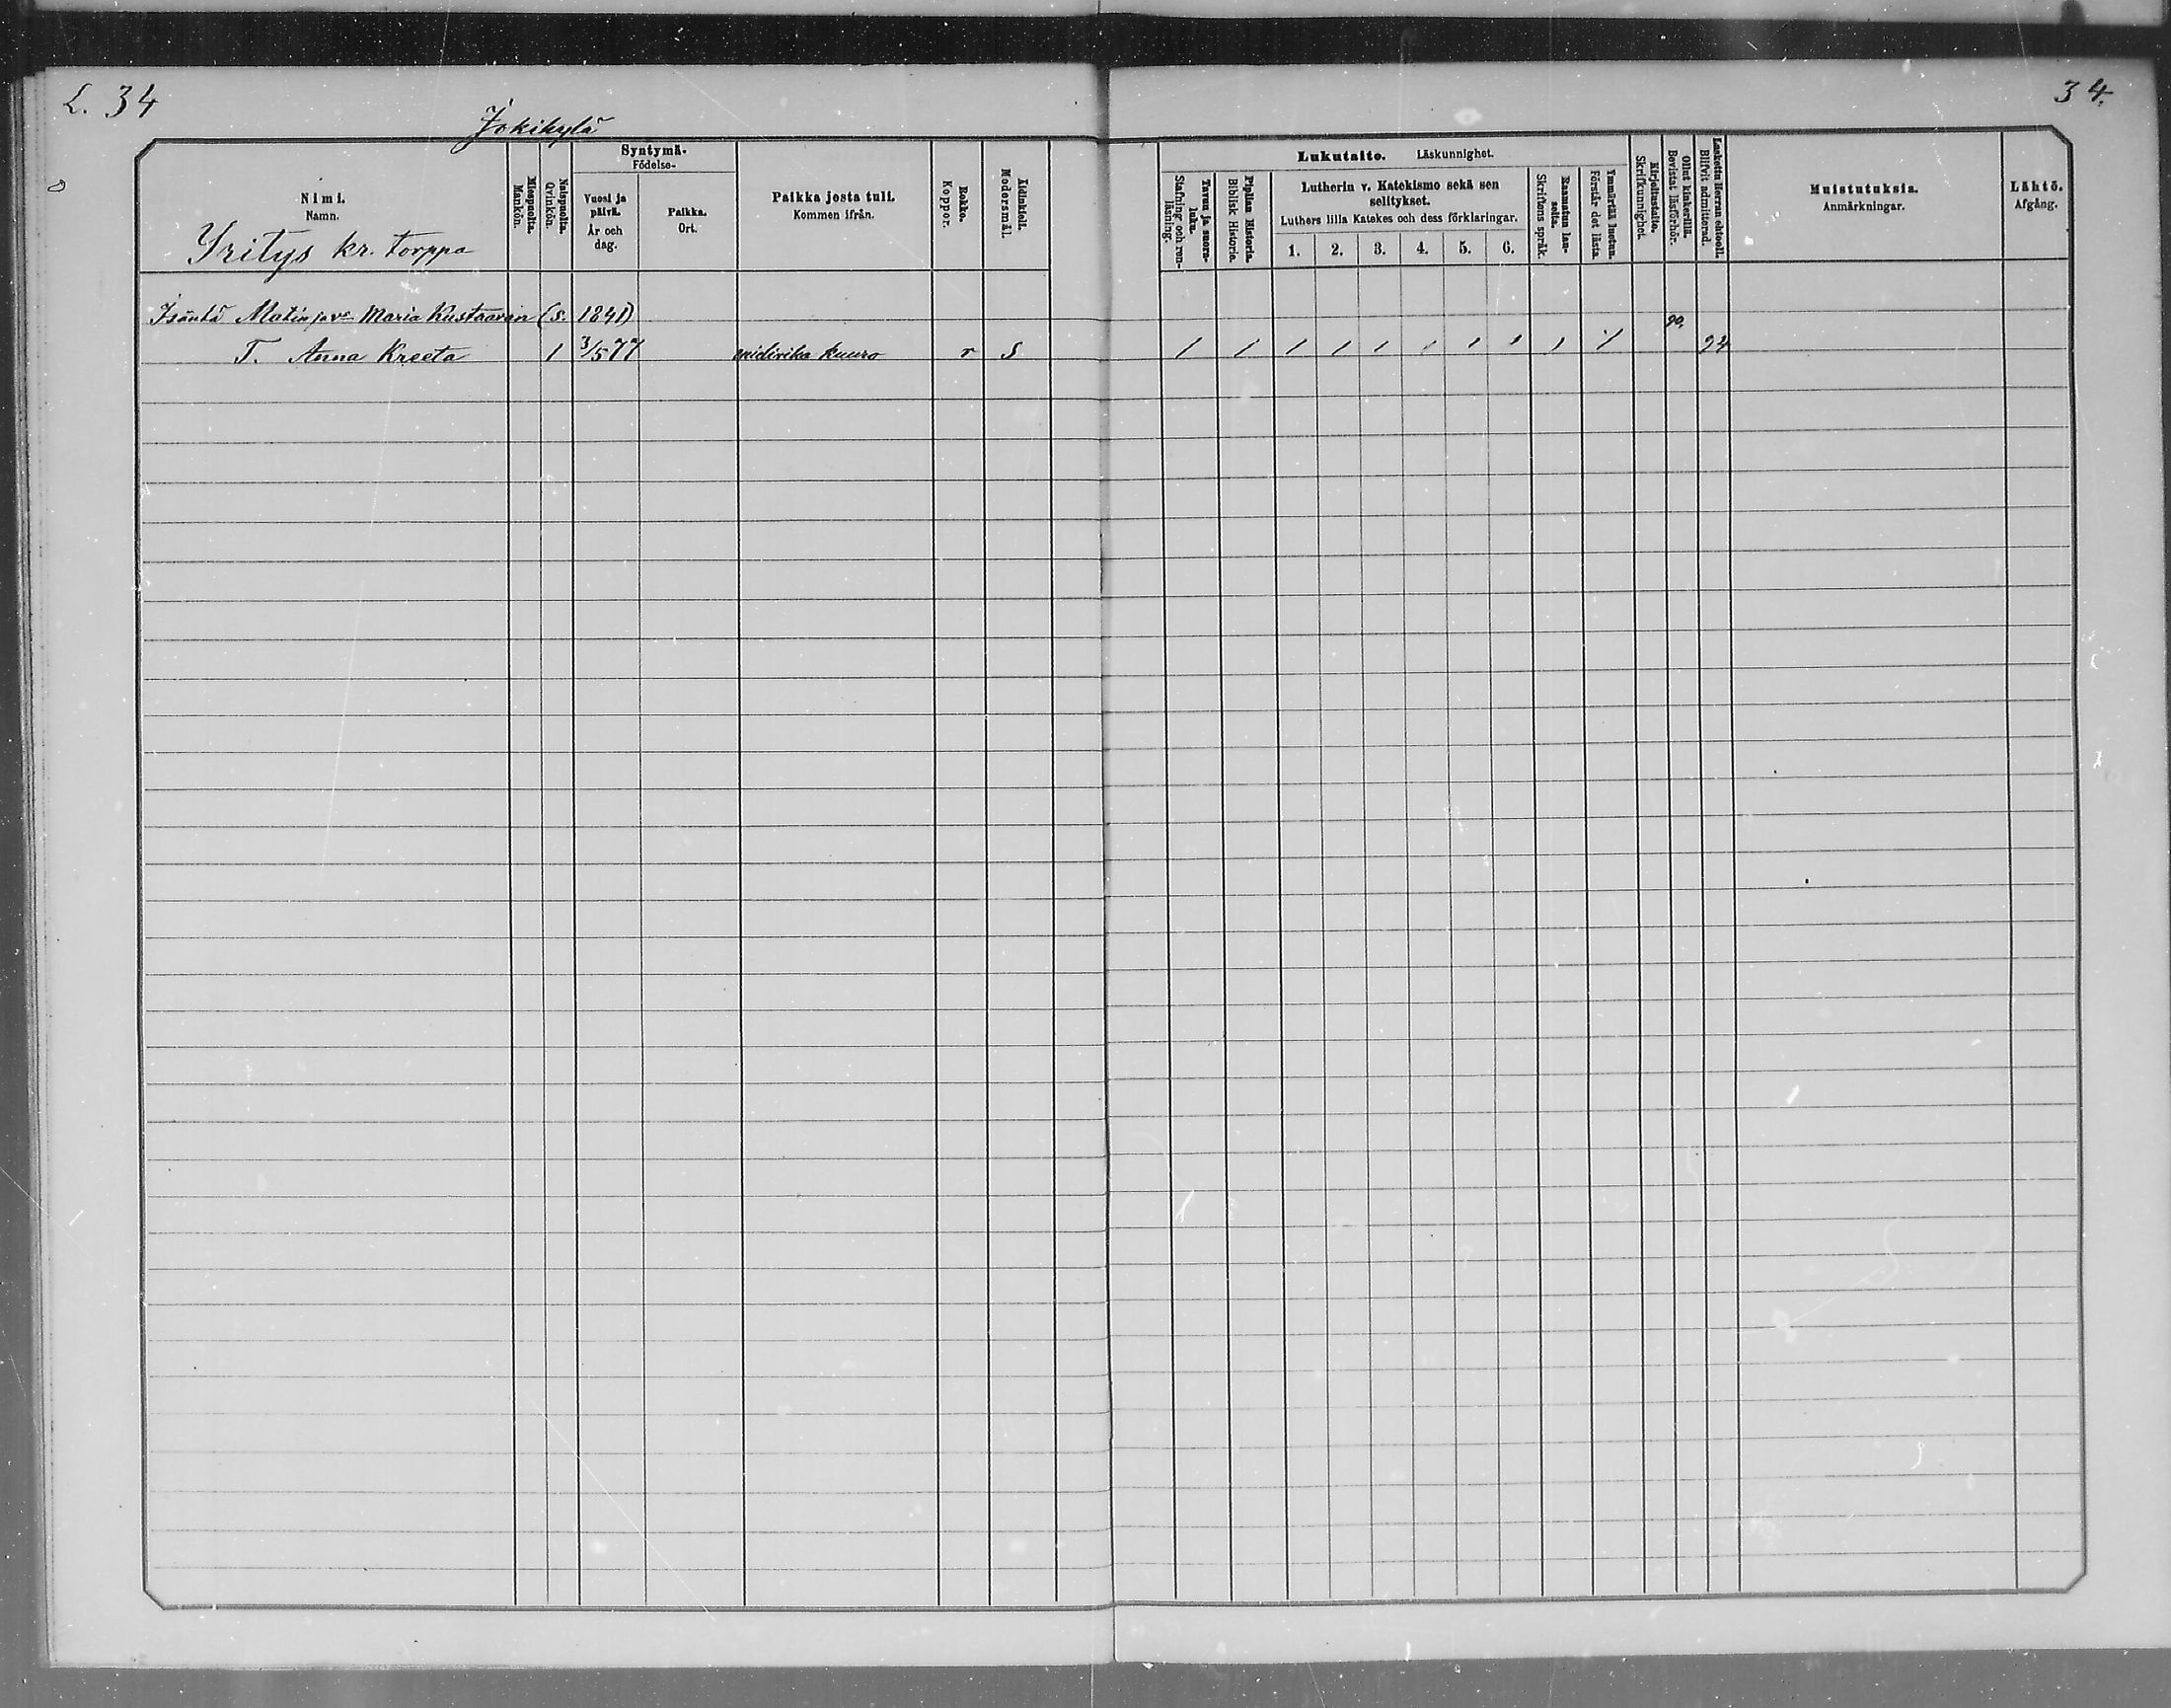 L. 34
34.
Jokikylä
Nimi.
Namn.
Yritys kr. torppa
Miespuolia.
Mankön.
Naispuolia.
Qvinkön.
Syntymä-
Födelse-
Vuosi ja päivä.
År och dag.
Paikka.
Ort.
Paikka josta tuli.
Kommen ifrån.
Rokko.
Koppor.
Äidinkieli.
Modersmål.
Lukutaito. Läskunnighet.
Tavuu ja suora-luku.
Stafning och ren-läsning.
Piplian Historia.
Biblisk Historie.
Lutherin v. Katekismo sekä sen
selitykset.
Luthers lilla Katekes och dess förklaringar.
1. 2. 3. 4. 5. 6.
Raamatun lau-seita.
Skriftens språk.
Ymmärtää luetun.
Förstår det lästa.
Kirjoitustaito.
Skrifkunnighet.
Ollut kinkerillä.
Bevistat läsförhör.
Laskettu Herran ehtooll.
Blifvit admitterad.
Muistutuksia.
Anmärkningar.
Lähtö.
Afgång.
Isäntä Matin ja v Maria Kustaavan (s. 1841)
90.
T. Anna Kreeta 1 3/5 77 kuuro r S 1 1 1 1 1 1 1 1 1 94